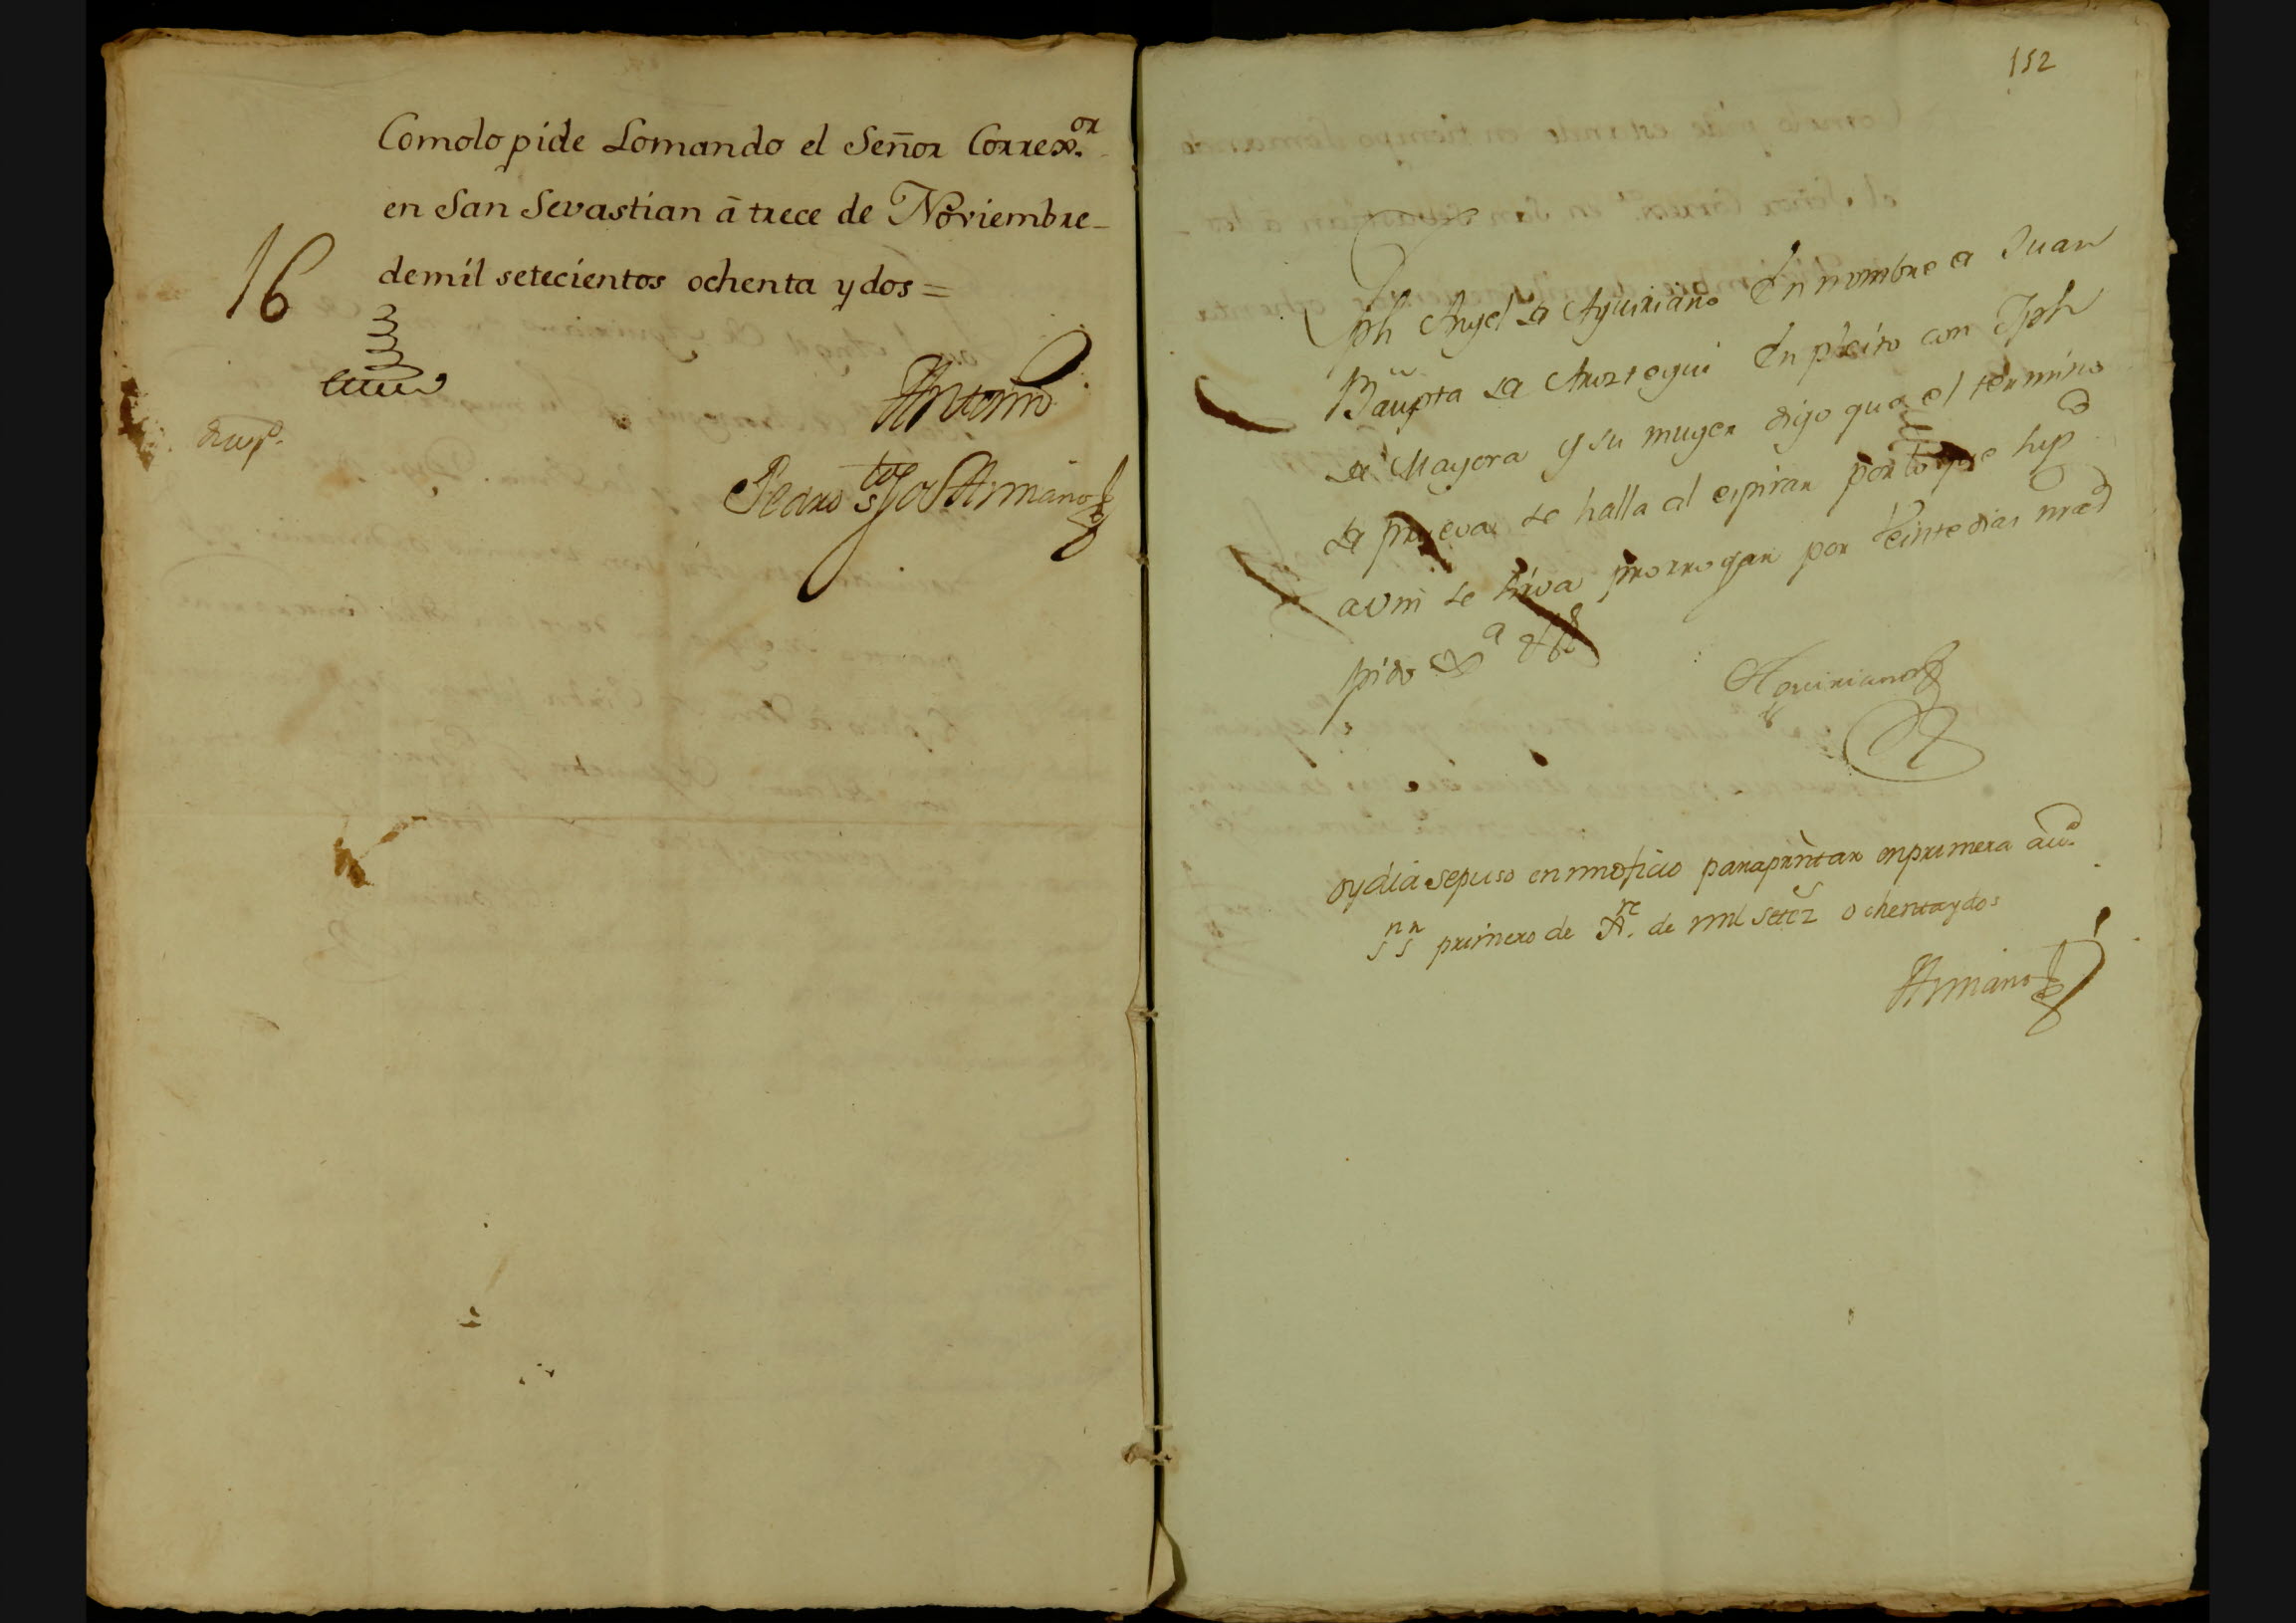 Comolo pide Lomando el Señor Correx.or
en San Sevastian â trece de Noviembre
demil setecientos ochenta y dos =
16
Antonio
Pedro Jph Armano
152
Jph Angel de Aguiriano En nombre de Juan
Baupta de Aroztegui En pleito con Jph
de Mayora y su muger digo que el termino
de prueva se halla al espirar por lo que sup.co
a Vm se sirva prorrogar por Veinte dias mas
pido Ja
Aguiriano
oy dia se puso en mi oficio para prntar en primera aud.
Sn Sn primero de Xre. de mil setez ochentaydos
Armano